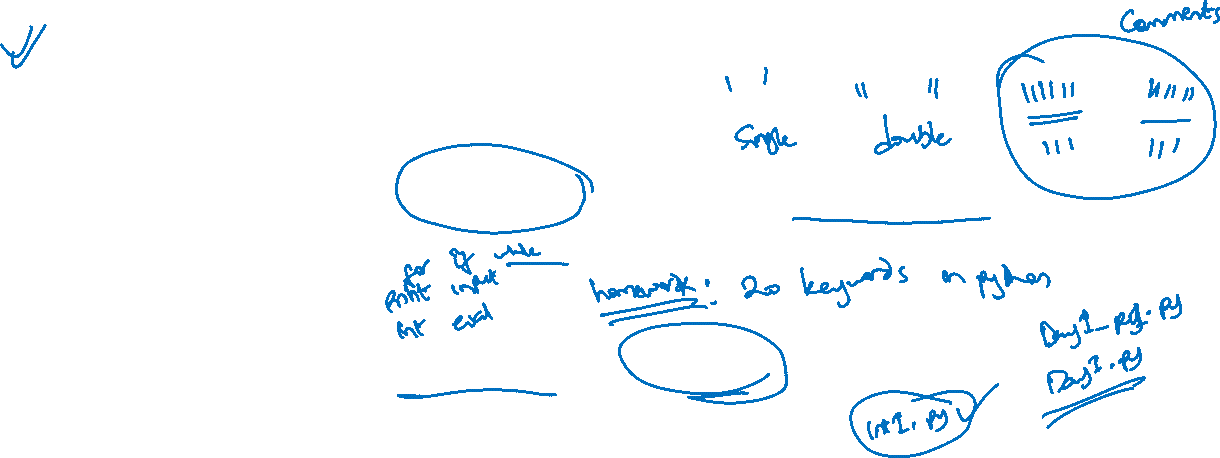 Comments
' ' " " """""" """"""
single double ''' '''
for if while
print input
int eval
homework: 200 keywords in python
Day1_prg.py
Day1.py
int1.py